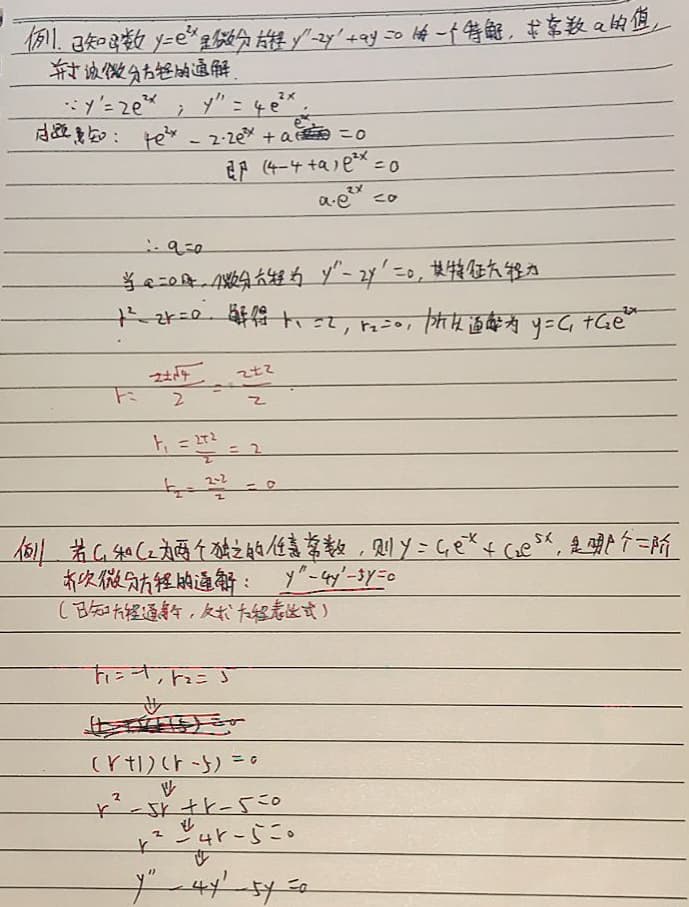 例1. 已知函数 y=e^{2x}是微分方程 y''-2y'+ay=0 的一个特解, 求常数 a 的值,
并求该微分方程的通解.
∵ y'=2e^{2x} ; y''=4e^{2x}.
由题意知: 4e^{2x} - 2·2e^{2x} + ae^{2x} =0
即 (4-4+a)e^{2x}=0
a·e^{2x}=0
∴ a=0
当a=0时, 微分方程为 y''-2y'=0, 其特征方程为
r²-2r=0. 解得 r₁=2, r₂=0, 所以通解为 y=C₁+C₂e^{2x}
r= \frac{2±√4}{2} = \frac{2±2}{2}.
r₁ = \frac{2+2}{2} = 2
r₂ = \frac{2-2}{2} = 0
例1 若C₁和C₂为两个独立的任意常数, 则 y=C₁e^{-x}+C₂e^{5x}, 是哪个二阶
齐次微分方程的通解: y''-4y'-5y=0
(已知方程通解, 反求方程表达式)
r₁=-1, r₂=5
⇓
(r+1)(r-5)=0
⇓
r²-5r+r-5=0
⇓
r²-4r-5=0
⇓
y''-4y'-5y=0